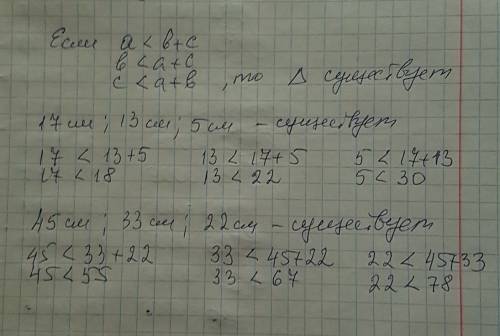 Если a < в+с
в < а+с
с < а+в , то Δ существует
17 см ; 13 см ; 5 см – существует
17 < 13+5 13 < 17+5 5 < 17+13
17 < 18 13 < 22 5 < 30
45 см ; 33 см ; 22 см – существует
45 < 33+22 33 < 45+22 22 < 45+33
45 < 55 33 < 67 22 < 78